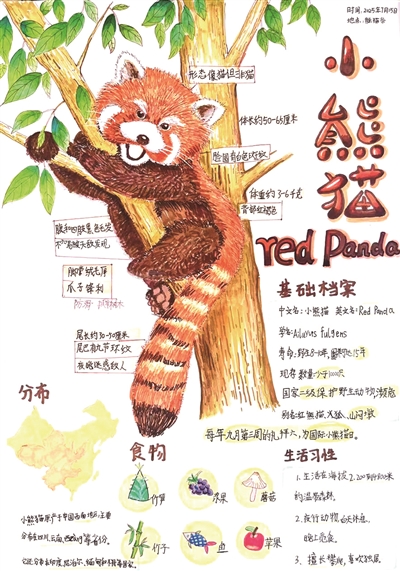 时间:2025年7月15日
地点:熊猫谷
小熊猫
red Panda
形态像猫但非猫
体长约50-65厘米
脸圆有白色斑纹
体重约3-6千克
背部红褐色
腹和四肢黑色毛发
不容被天敌发现
脚掌绒毛厚
爪子锋利
尾长约30-50厘米
尾巴九节环纹
夜晚迷惑敌人
基础档案
中文名:小熊猫 英文名:Red Panda
学名:Ailurus fulgens
寿命:野生8-10年,圈养15年
现存数量小于10000只
国家二级保护野生动物濒危
别名:红熊猫、九节狼、山闷蹲
每年九月第三周的礼拜六,为国际小熊猫日。
分布
小熊猫原产于中国西南地区,主要
分布在四川、云南、西藏等省份。
食物
竹笋
浆果
蘑菇
竹子
鱼
苹果
生活习性
1、生活在海拔2200到4800米
的温带森林。
2、夜行动物 白天休息,
晚上觅食。
3、擅长攀爬,喜欢独居